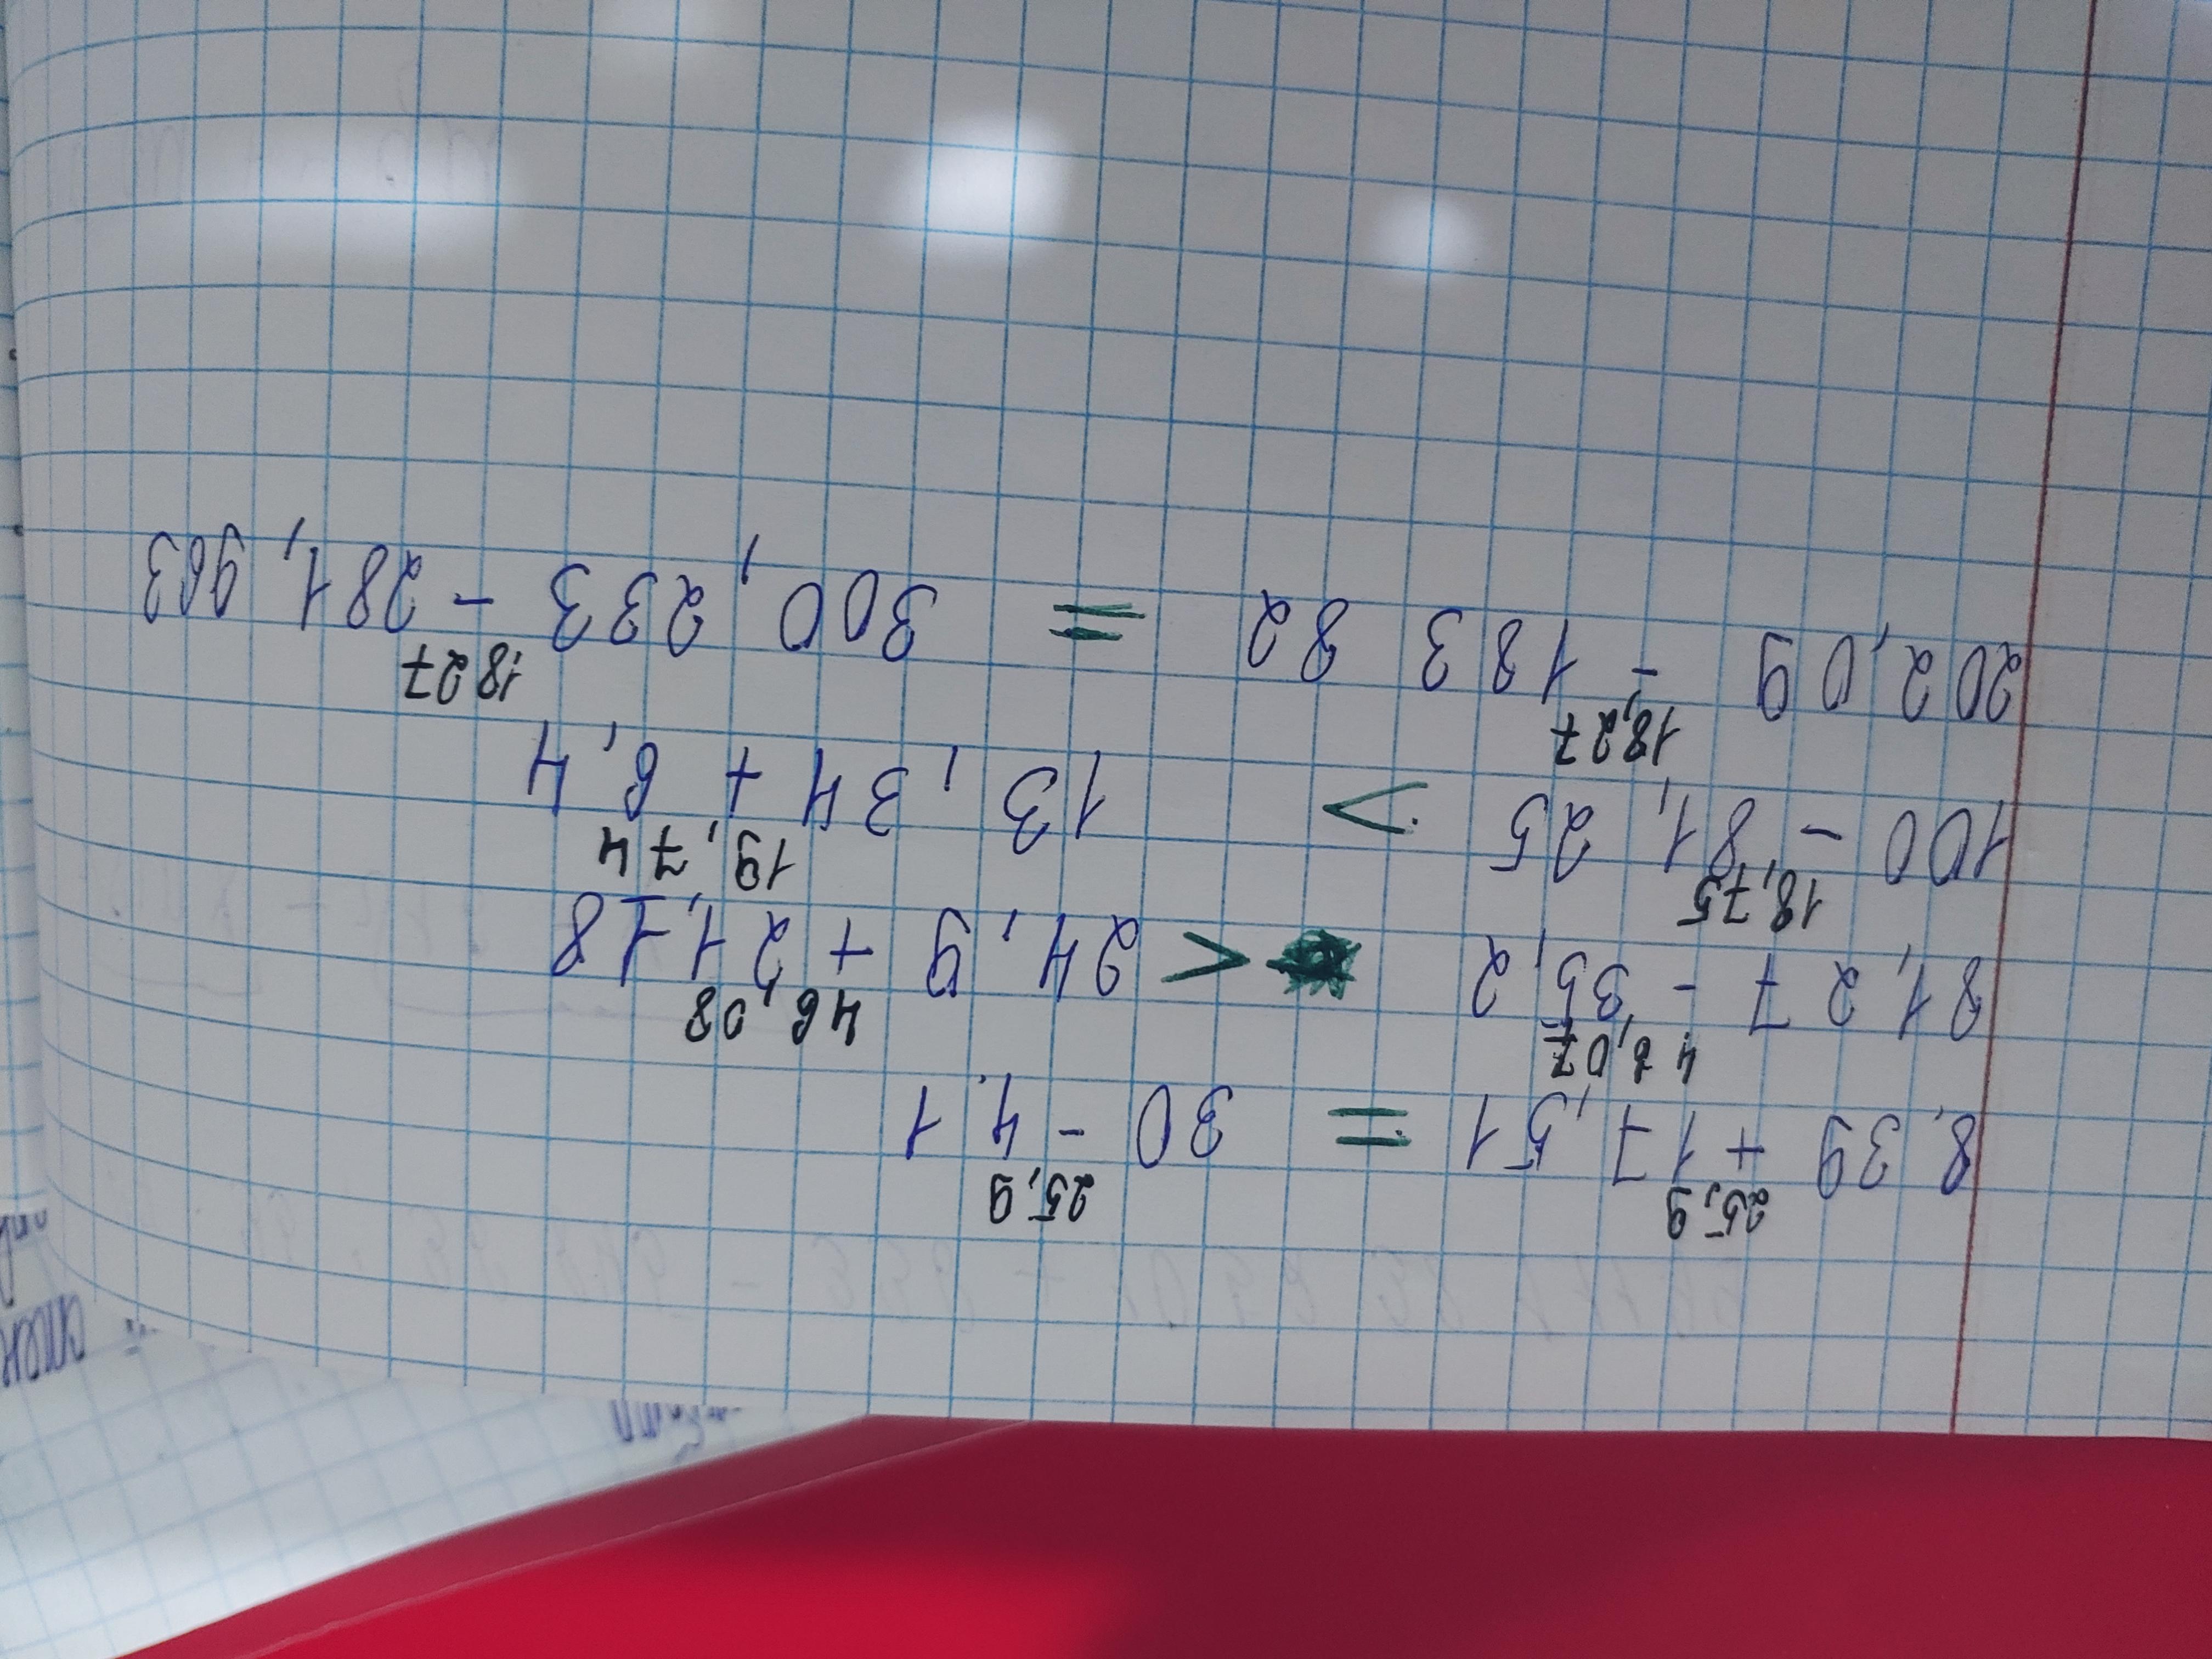 25,9 25,9
8,39 + 17,51 = 30 - 4,1
46,07 46,08
81,27 - 35,2 < 24,9 + 21,18
18,75 19,74
100 - 81,25 > 13,34 + 6,4
18,27 18 27
202,09 - 183 82 = 300,233 - 281,963